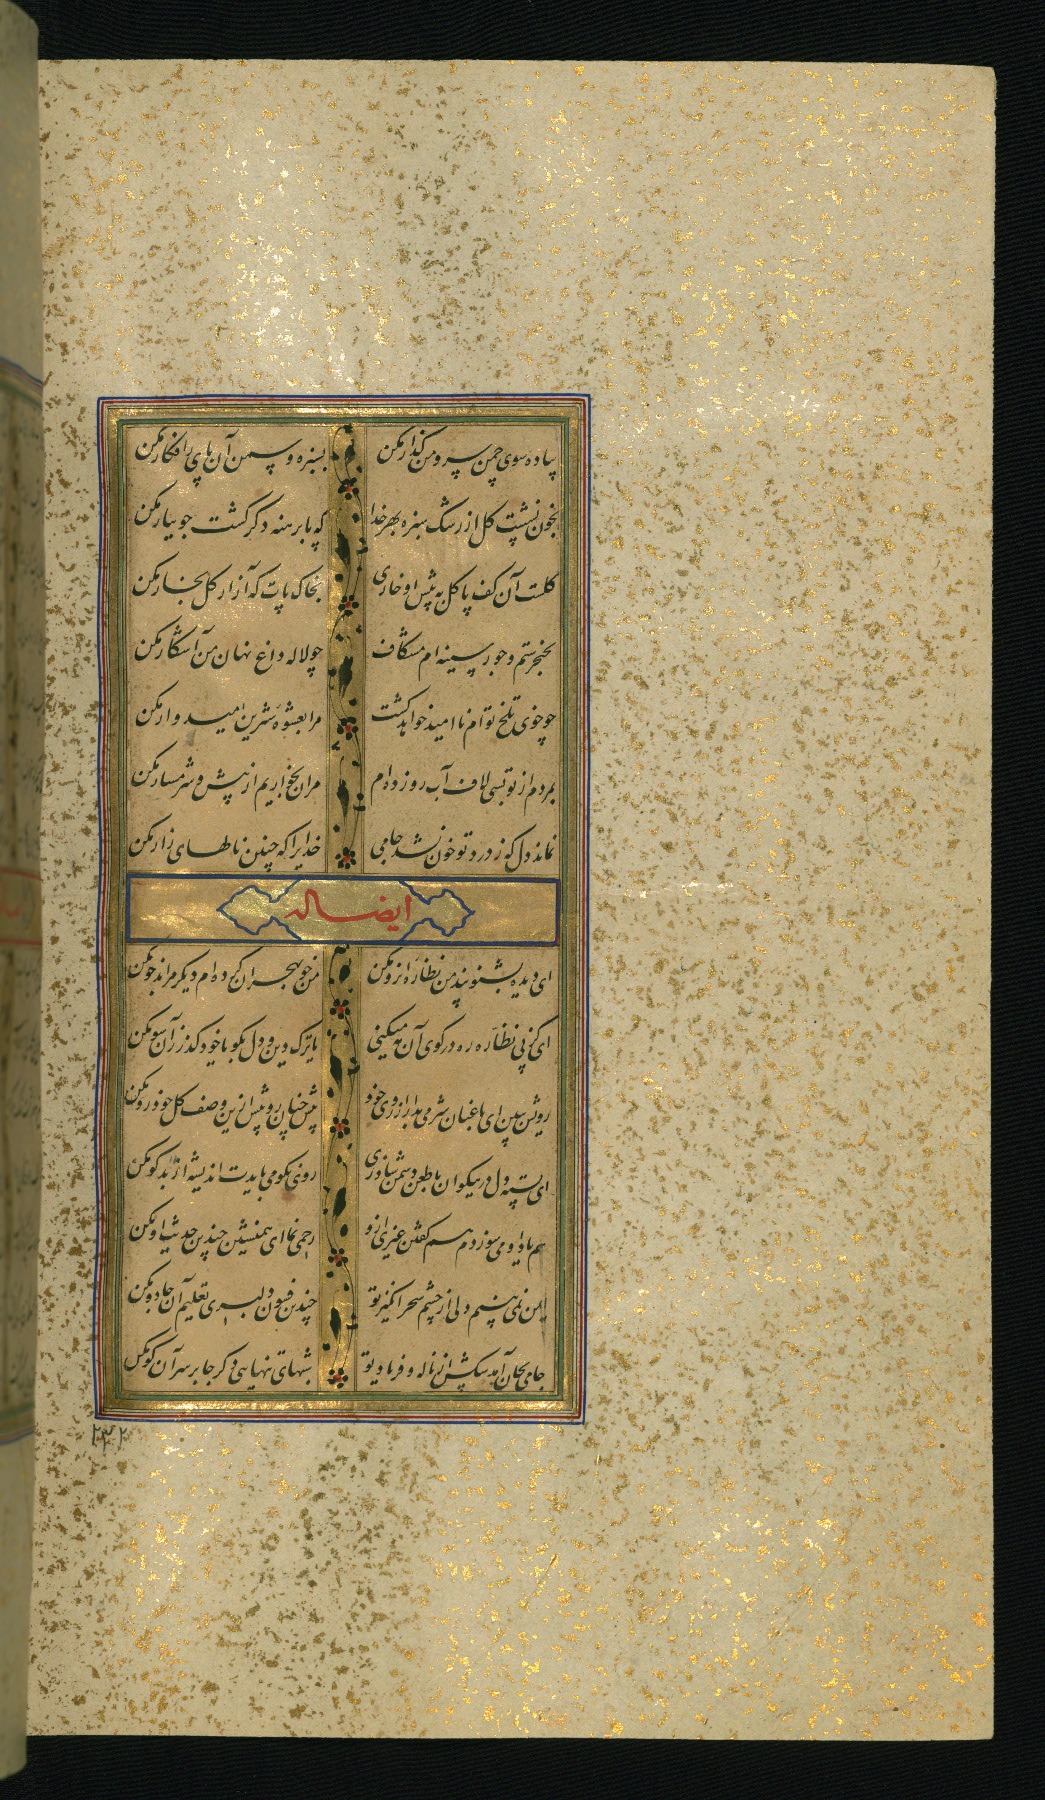 پیاده سوی چمن سرو من گذار مکن
بسبزه و سمن آن پای را فکار مکن
بخون نشست گل از رشک سبزه بهر خدا
که پا برهنه دگر گشت جویبار مکن
گلست آن کف پا گل به پیش او خاری
بخاک پات که آزار گل بخار مکن
بخنجر ستم و جور سینه ام مشکاف
چو لاله داغ نهان من آشکار مکن
چو خوی تلخ توام ناامید خواهد کشت
مرا بعشوه شیرین امیدوار مکن
بمردم از تو بسی لاف آب رو زده ام
مران بخواریم از پیش و شرمسار مکن
نماند دل که ز درد تو خون نشد جامی
خدایرا که چنین نالهای زار مکن
ایضا له
ای دیده بشنو پند من نظاره آن رو مکن
من خو بهجران کرده ام دیگر مرا بدخو مکن
ای کز پی نظاره ره در کوی آن مه میکنی
یا ترک دین و دل بکو یا خود گذر زان سو مکن
رویش ببین ای باغبان شرمی بدار از روی خود
پیش چنان رو بیش ازین وصف گل خودرو مکن
ای بسته دل در نیکوان با طعن دشمن شاد زی
روی نکو می بایدت اندیشه از بدگو مکن
هم یاد او می سوزدم هم گفتن غیری ازو
رحمی نما ای همنشین چندین حدیث او مکن
ایمن نمی بینم دلی از چشم سحر انگیز تو
چندین فسون دلبری تعلیم آن جادو مکن
جامی بجان آمد سگش از ناله و فریاد تو
شبهای تنهایی دگر جا بر سر آن کو مکن
۲۳۲